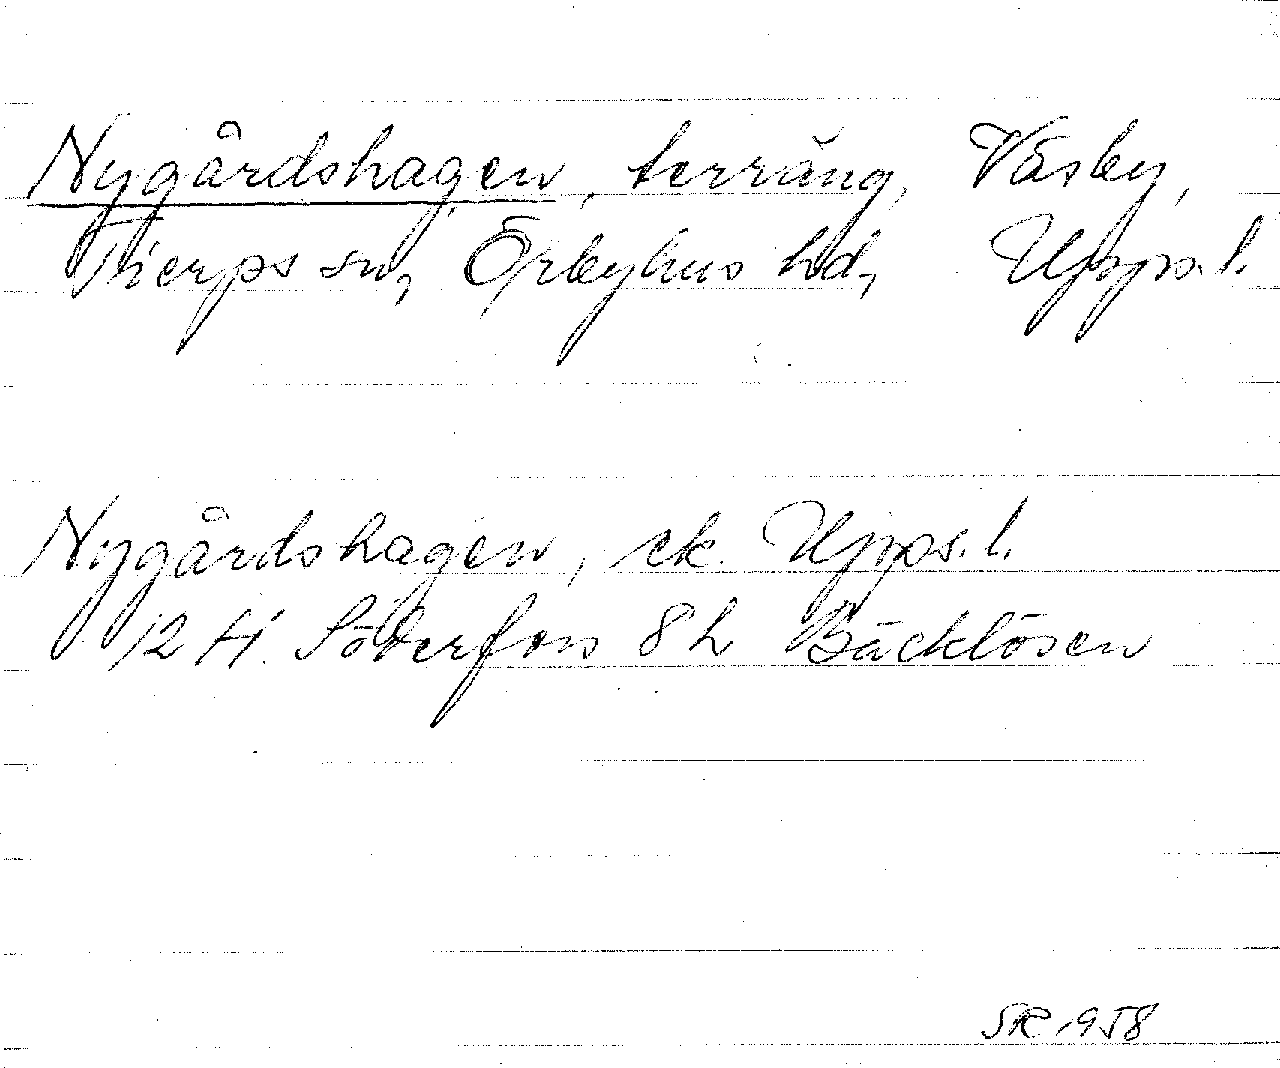 Nygårdshagen, terräng, Väsby,
Tierps sn, Örbyhus hd, Upps. l.
Nygårdshagen, ek. Upps. l.
12 H. Söderfors 8 h Bäcklösen
SR 1958